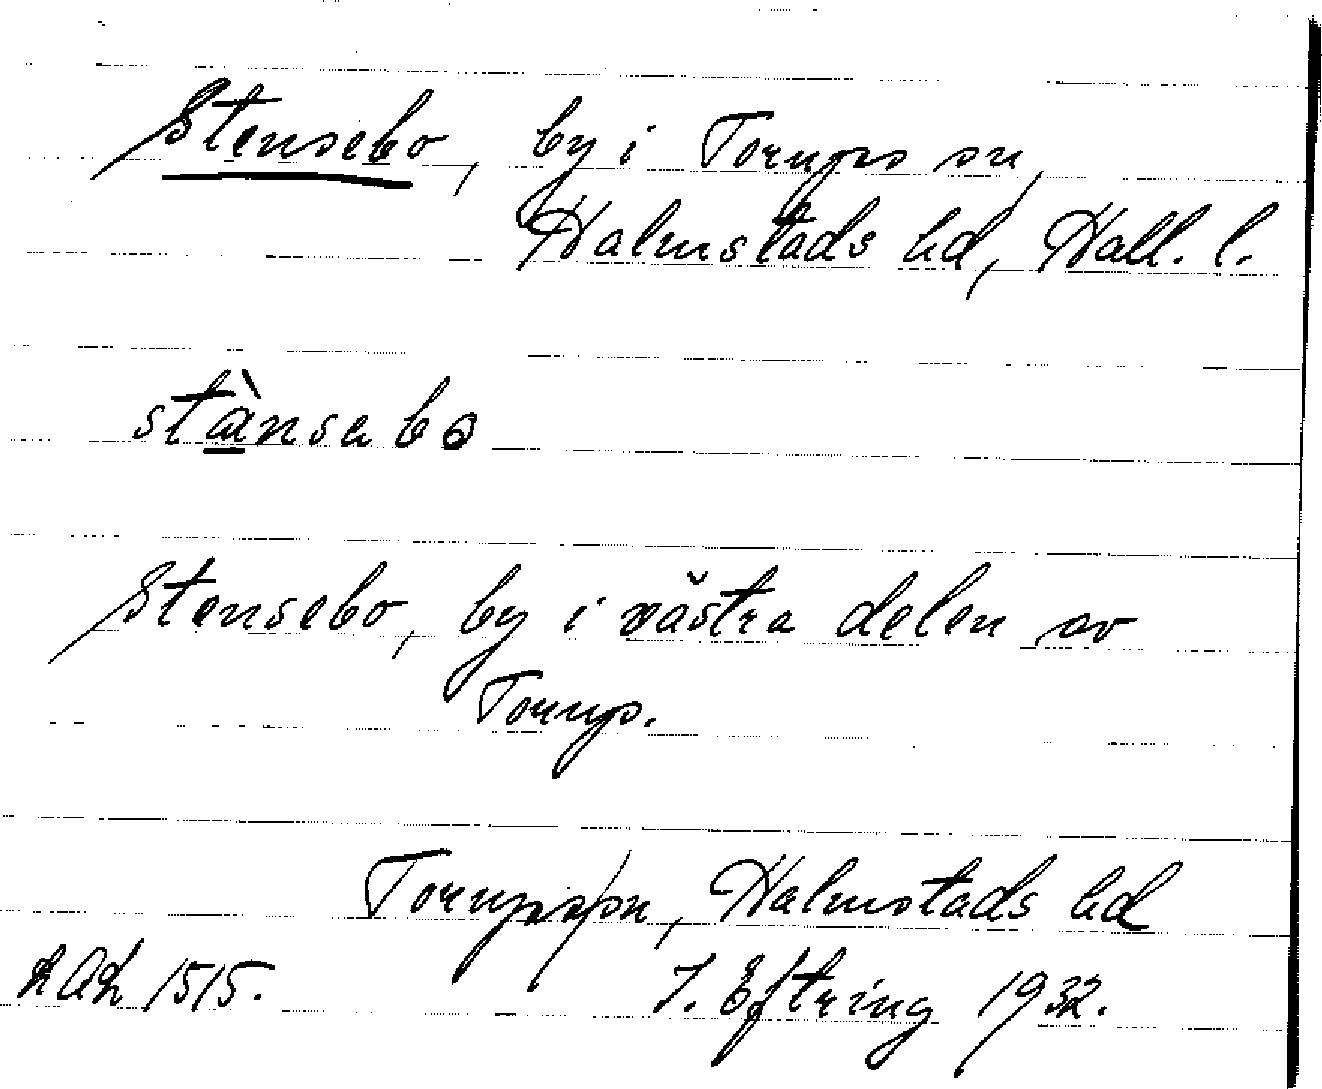 Stensebo, by i Torups sn,
Halmstads hd, Hall. l.
stànsabo
Stensebo, by i västra delen av
Torup.
Torups sn, Halmstads hd
LAL 1515. J. Eftring 1932.